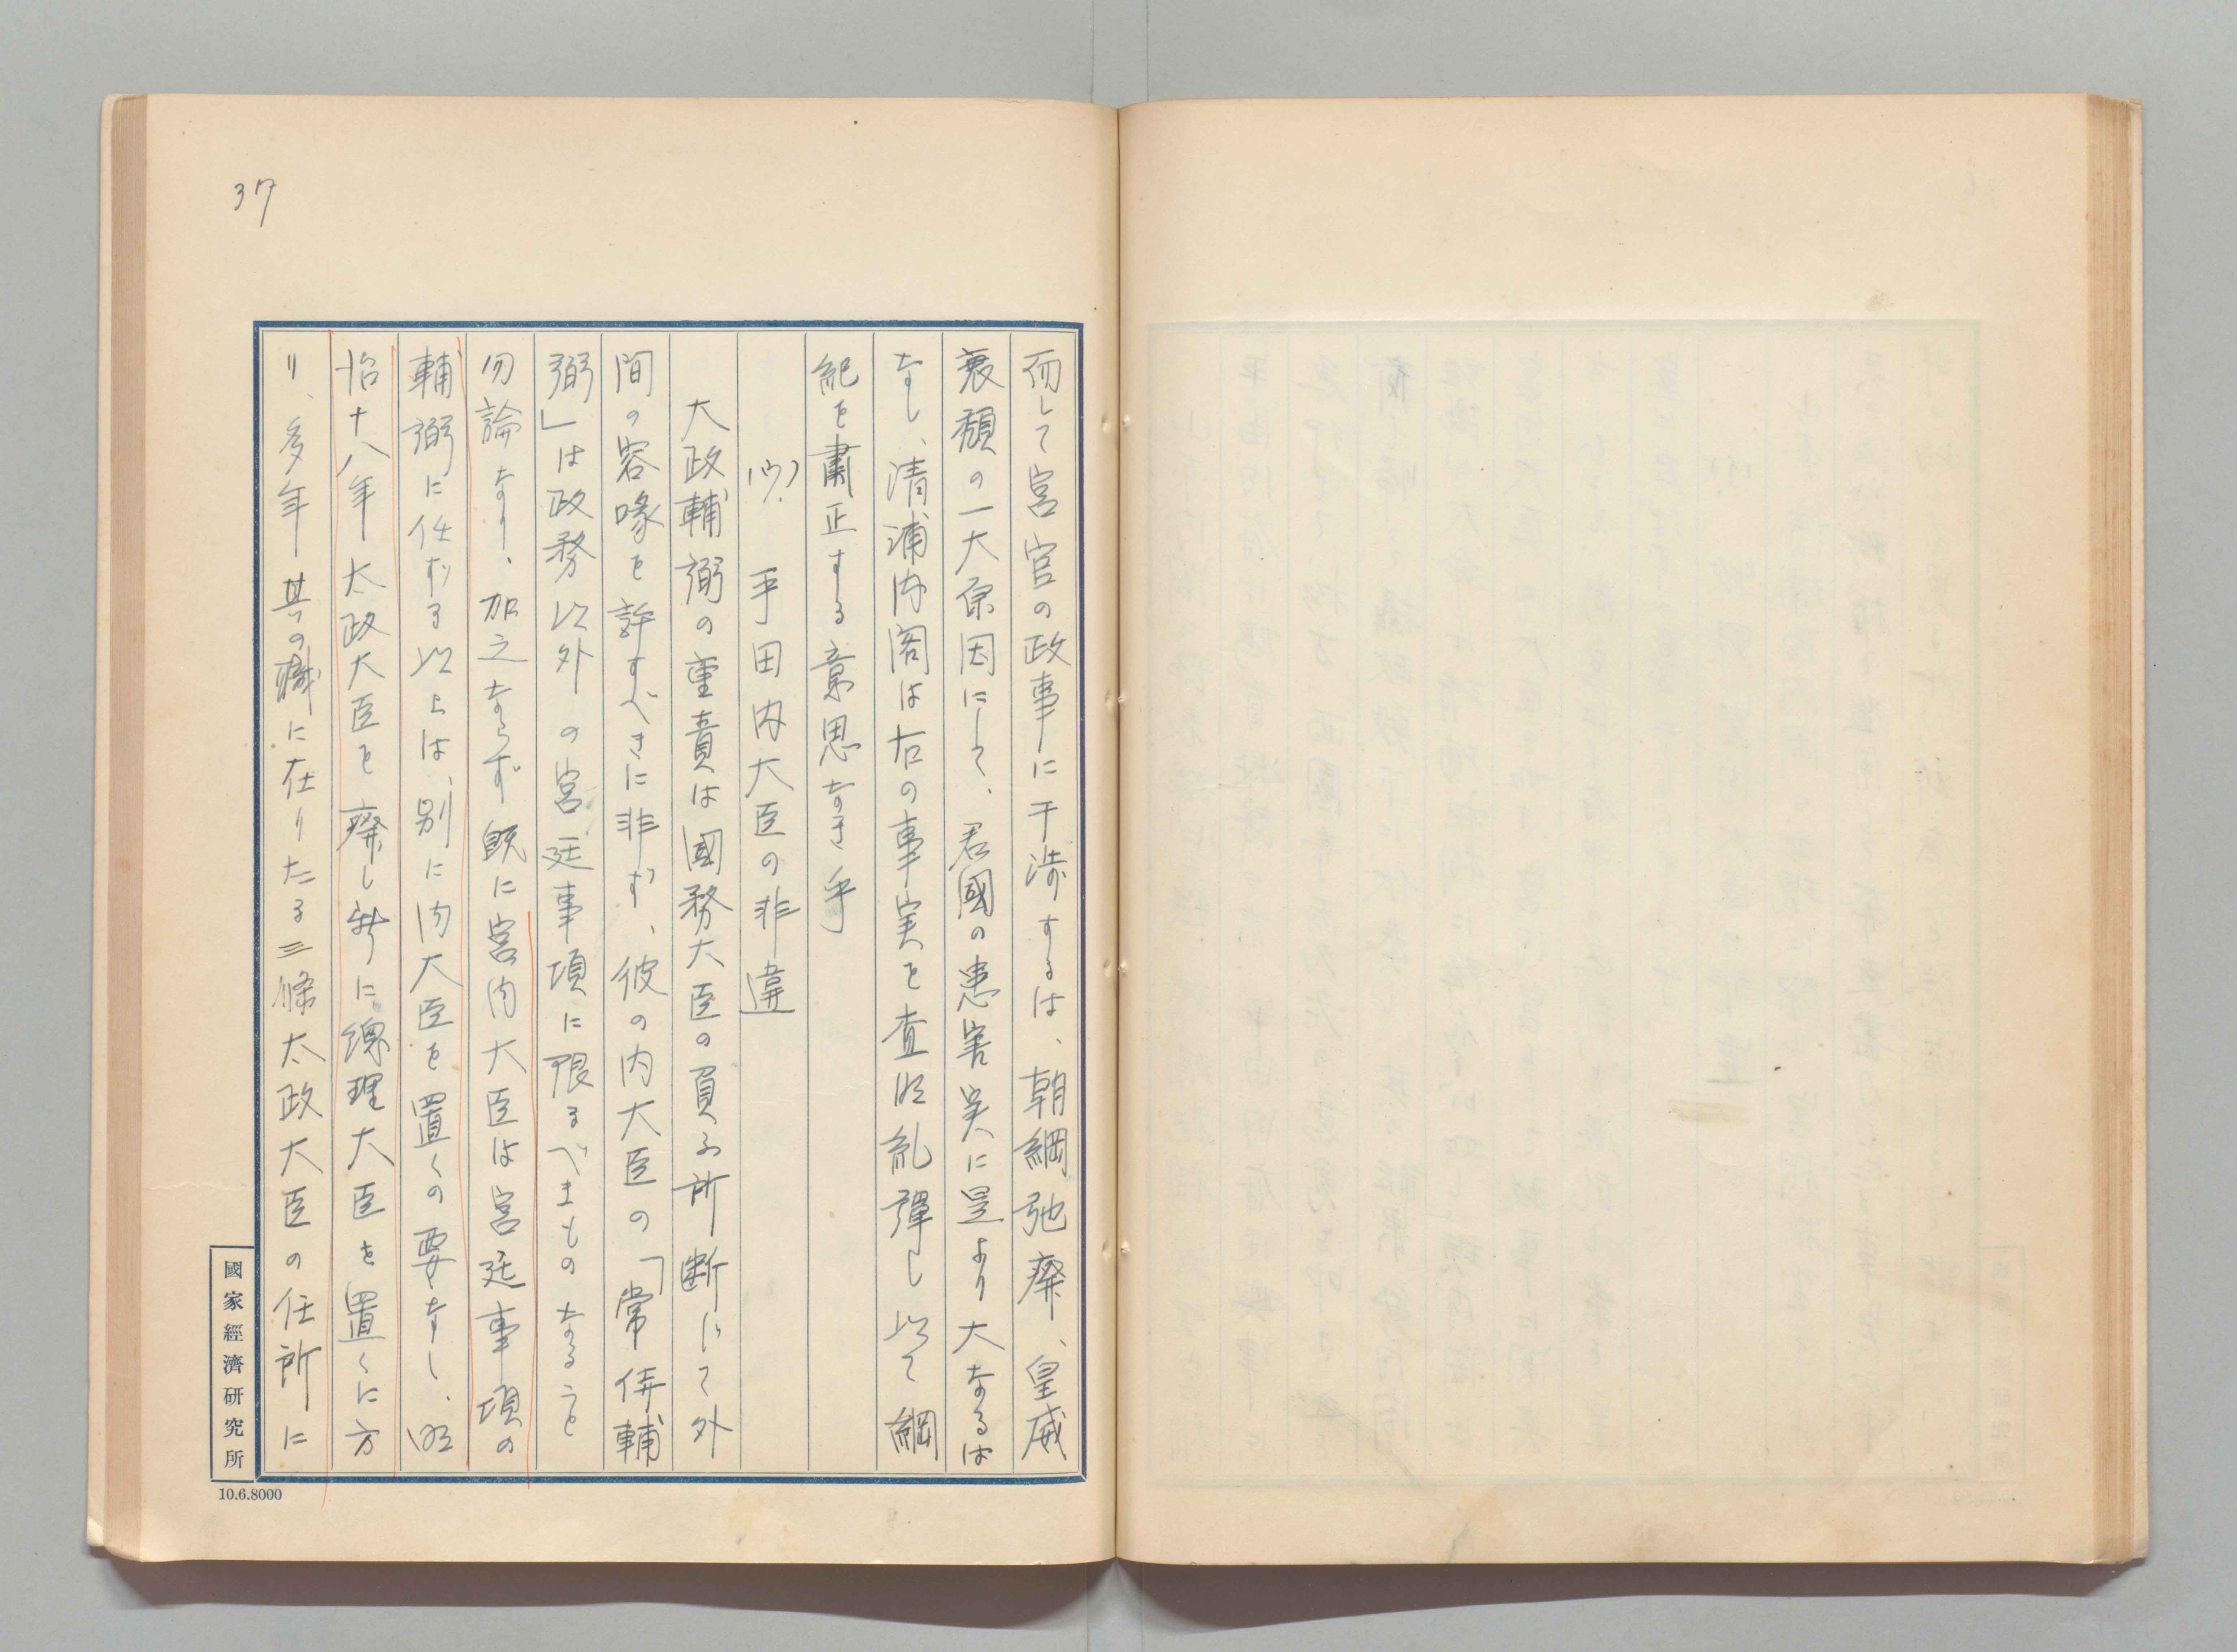 37
而して宮官の政事に干渉するは、朝綱弛廃、皇威
衰頽の一大原因にして、君國の患害実に是より大なるは
なし、清浦内閣は右の事実を査明糺弾し以て綱
紀を粛正する意思なき乎
平田内大臣の非違
大政輔弼の重責は國務大臣の負ふ所断じて外
間の容喙を許すべきに非ず、彼の内大臣の「常侍輔
弼」は政務以外の宮廷事項に限るべきものなること
勿論なり、加之ならず既に宮内大臣は宮廷事項の
輔弼に任ずる以上は、別に内大臣を置くの要なし、明
治十八年太政大臣を廃し新に総理大臣を置くに方
り、多年其の職に在りたる三條太政大臣の任所に
國家經濟研究所
10.6.8000